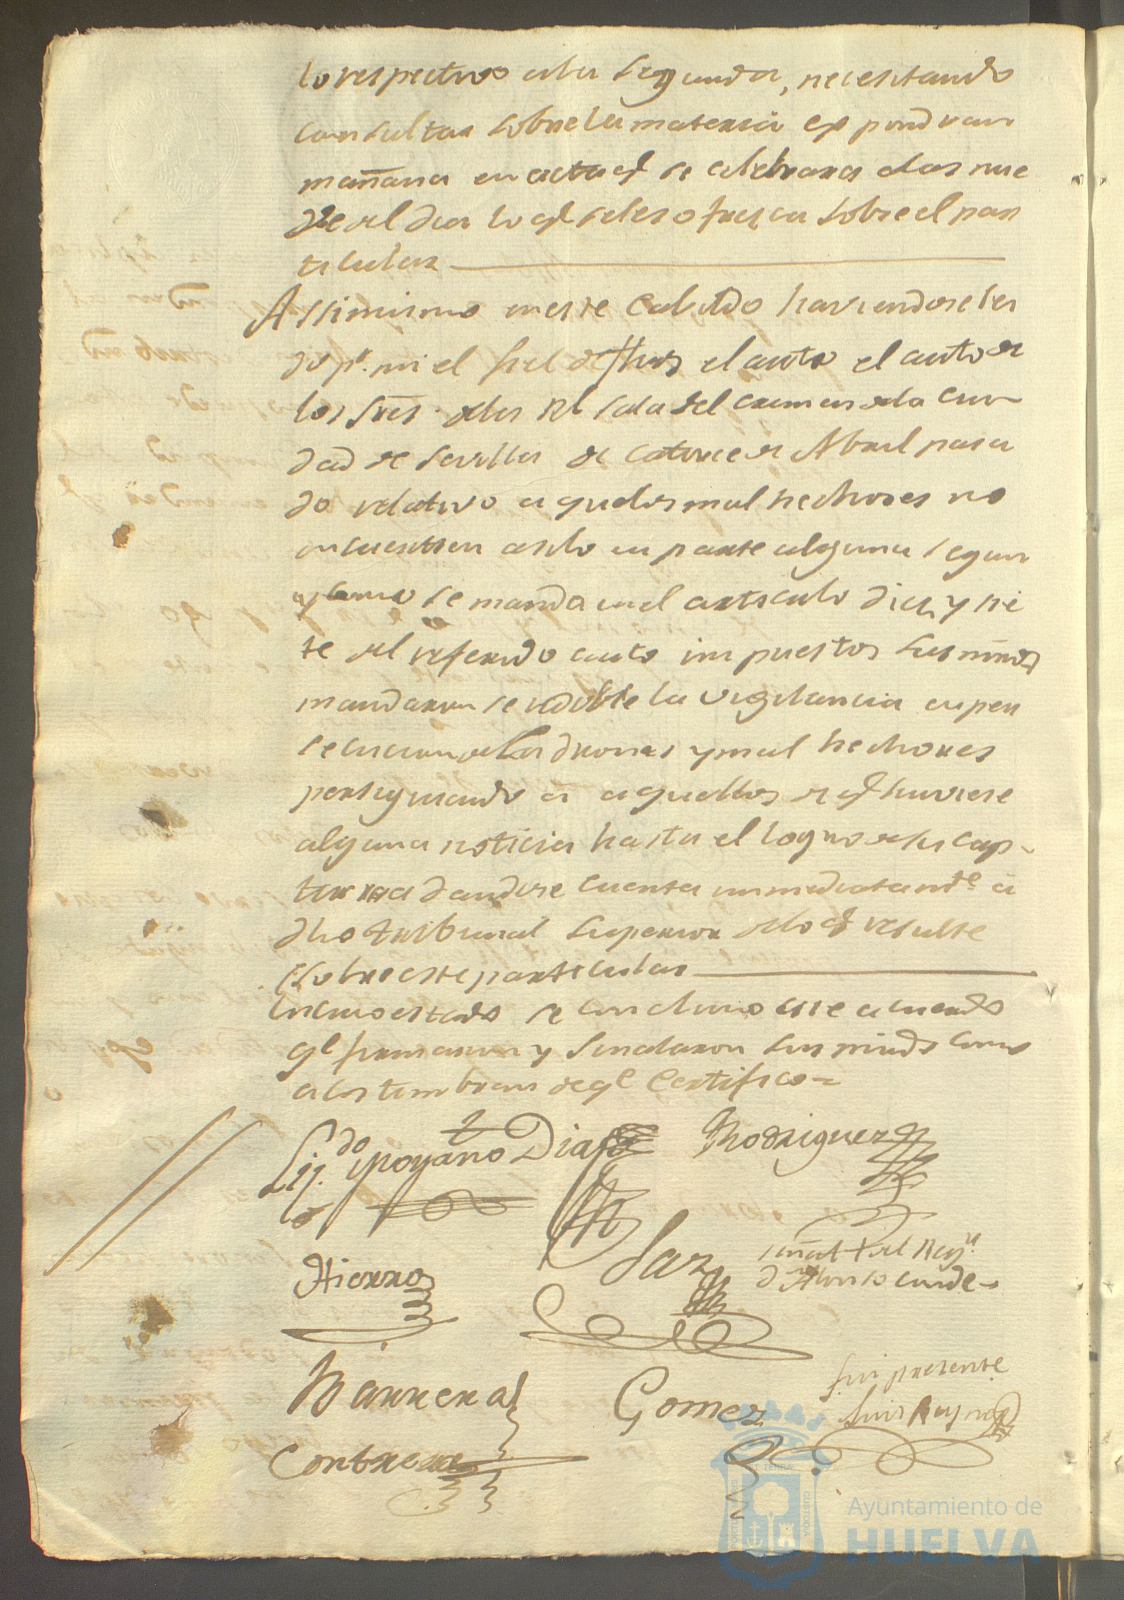 lo respectivo a la segunda, necesitando
consultar sobre la materia expondran
mañana en acta q.e se celebrara a las nue
ve del dia lo q.e seles ofrezca sobre el par
ticular
Assimismo en este Cabildo haviendose lei
do p.r mi el el auto el auto de
los Sres. dela Rl Sala del crimen dela ciu
dad de Sevilla de catorce de Abril pasa
do relativo a quelos mal hechores no
encuentren asilo en parte alguna segun
y como se manda en el articulo diez y sie
te del referido auto impuestos sus mrds
mandaron se redoble la vigilancia en per
secucion de Ladrones y mal hechores
persiguiendo a aquellos de q.e huviese
alguna noticia hasta el logro de su cap-
tura dandose cuenta inmediatam.te a
dho tribunal superior delo q.e resulte
sobre este particular
En cuio estado se concluio este acuerdo
q.e firmaron y señalaron sus mrds como
acostumbran de q.e Certifico=
Lij.do Moyano Diaz Rodriguez
Hierro Saz señal + del Reg.r
d.n Alonso conde
Barrera Gomez Fui presente
Luis
Contrera
Ayuntamiento de
HUELVA